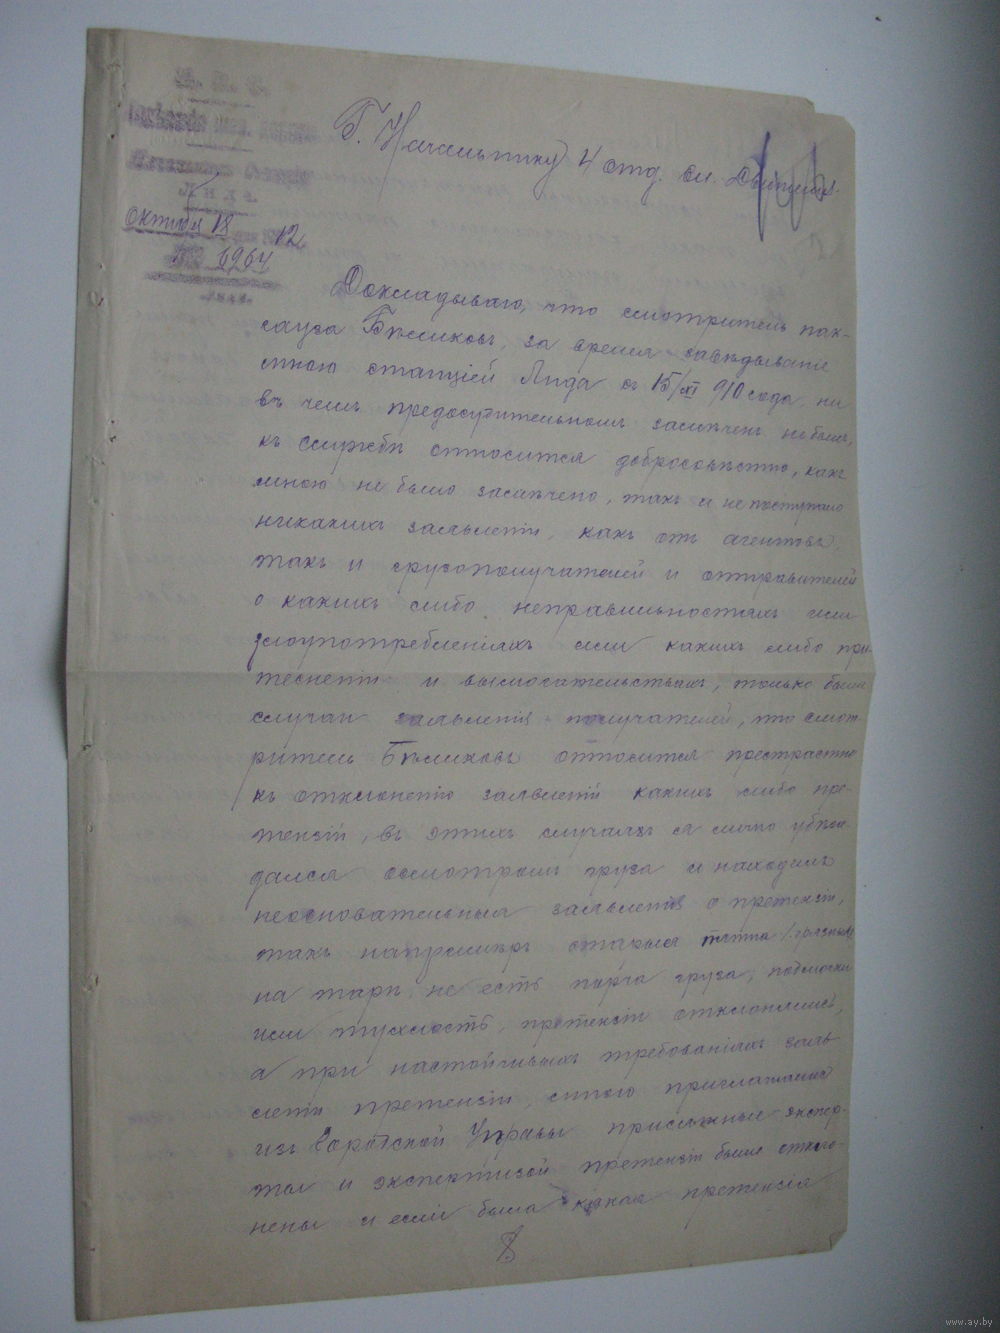 Лида.
октября 18 12
№ 6964
Г. Начальнику 4 отд. сл. Движенія.
Докладываю, что смотритель пак-
гауза Бѣликовъ, за время завѣдыванія
мною станціей Лида съ 15/XI 910 года, ни
въ чемъ предосудительномъ замѣченъ не былъ,
къ службѣ относится добросовѣстно, какъ
мною не было замѣчено, такъ и не поступало
никакихъ заявленій, какъ отъ агентовъ,
такъ и грузополучателей и отправителей
о какихъ либо неправильностяхъ или
злоупотребленіяхъ или какихъ либо при-
тесненій и вымогательствахъ, только были
случаи заявленія получателей, что смот-
ритель Бѣликовъ относится престрастно
къ отклоненію заявленій какихъ либо пре-
тензій, въ этихъ случаяхъ я лично убѣж-
дался осмотромъ груза и находилъ
неосновательныя заявленія о претензіи,
такъ напримѣръ старыя пятна
на тарѣ, не есть порча груза, подмочки
или тухлость, претензіи отклонялись,
а при настойчивыхъ требованіяхъ заяв
леній претензій, мною приглашались
изъ Городской Управы присяжные экспер-
ты и экспертизой претензіи были откло-
нены и если была какая претензія
8
www.ay.by